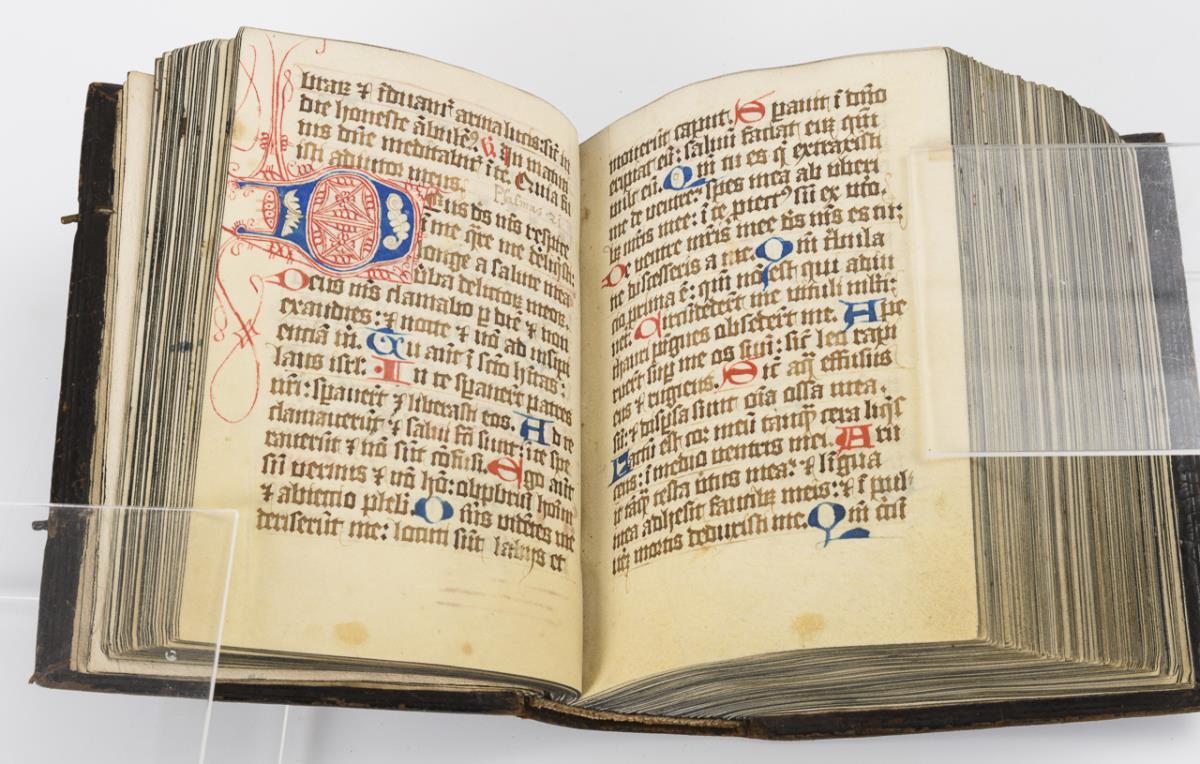 braꝝ ⁊ īduam᷑ arma lucis: sic̄ in
die honeste ābulem⁹ ℣ In matuti
nis dn̄e meditabor ī te. Quia fu
isti adiutor meus.
Psalmus
Deus ds ms respice
ī me q̄re me
longe a salute mea
v̄ba delictoꝝ meoꝝ.
Deus ms clamabo p die ⁊ non
exaudies: ⁊ nocte ⁊ nō ad insipi
enciā m̄. Tu aūt ī scō hītas:
laus isrl̄. In te spavert̄ patres
nr̄i: spavert̄ ⁊ liberasti eos. Ad te
clamaverūt ⁊ salvi fc̄i sunt: ī te spe
raverūt ⁊ nō sūt cōfusi. Ego aūt
sū vermis ⁊ nō hō: obpbriū hoīm
⁊ abiectio plebi. Oms vidētes me
deriserūt me: locuti sūt labijs et
moverūt caput. Spavit ī dn̄o
eripiat eū: salvū faciat eū qm̄
vult eū. Qm̄ tu es q̄ extraxisti
me de ventre: spes mea ab uberi
bꝫ mr̄is mee: ī te piect⁹ sū ex vtō.
De ventre mr̄is mee ds ms es tu:
ne discesseris a me. Qm̄ t̄bula
cio pxima ē: qm̄ nō est qui adiu
vet. Circūdedert̄ me vituli mlti:
thauri pīgues obsedert̄ me. Ape
ruert̄ sup me os suū: sic̄ leo rapi
ens ⁊ rugiens. Sic̄ aq̄ effusus
sū: ⁊ dispsa sunt oīa ossa mea.
Factū est cor meū tamq̄ cera liq̄sc
cens: ī medio ventris mei. Aru
it tāq̄ testa virtus mea: ⁊ ligua
mea adhesit faucibꝫ meis: ⁊ ī pul
vē mortis deduxisti me. Qm̄ cīcū